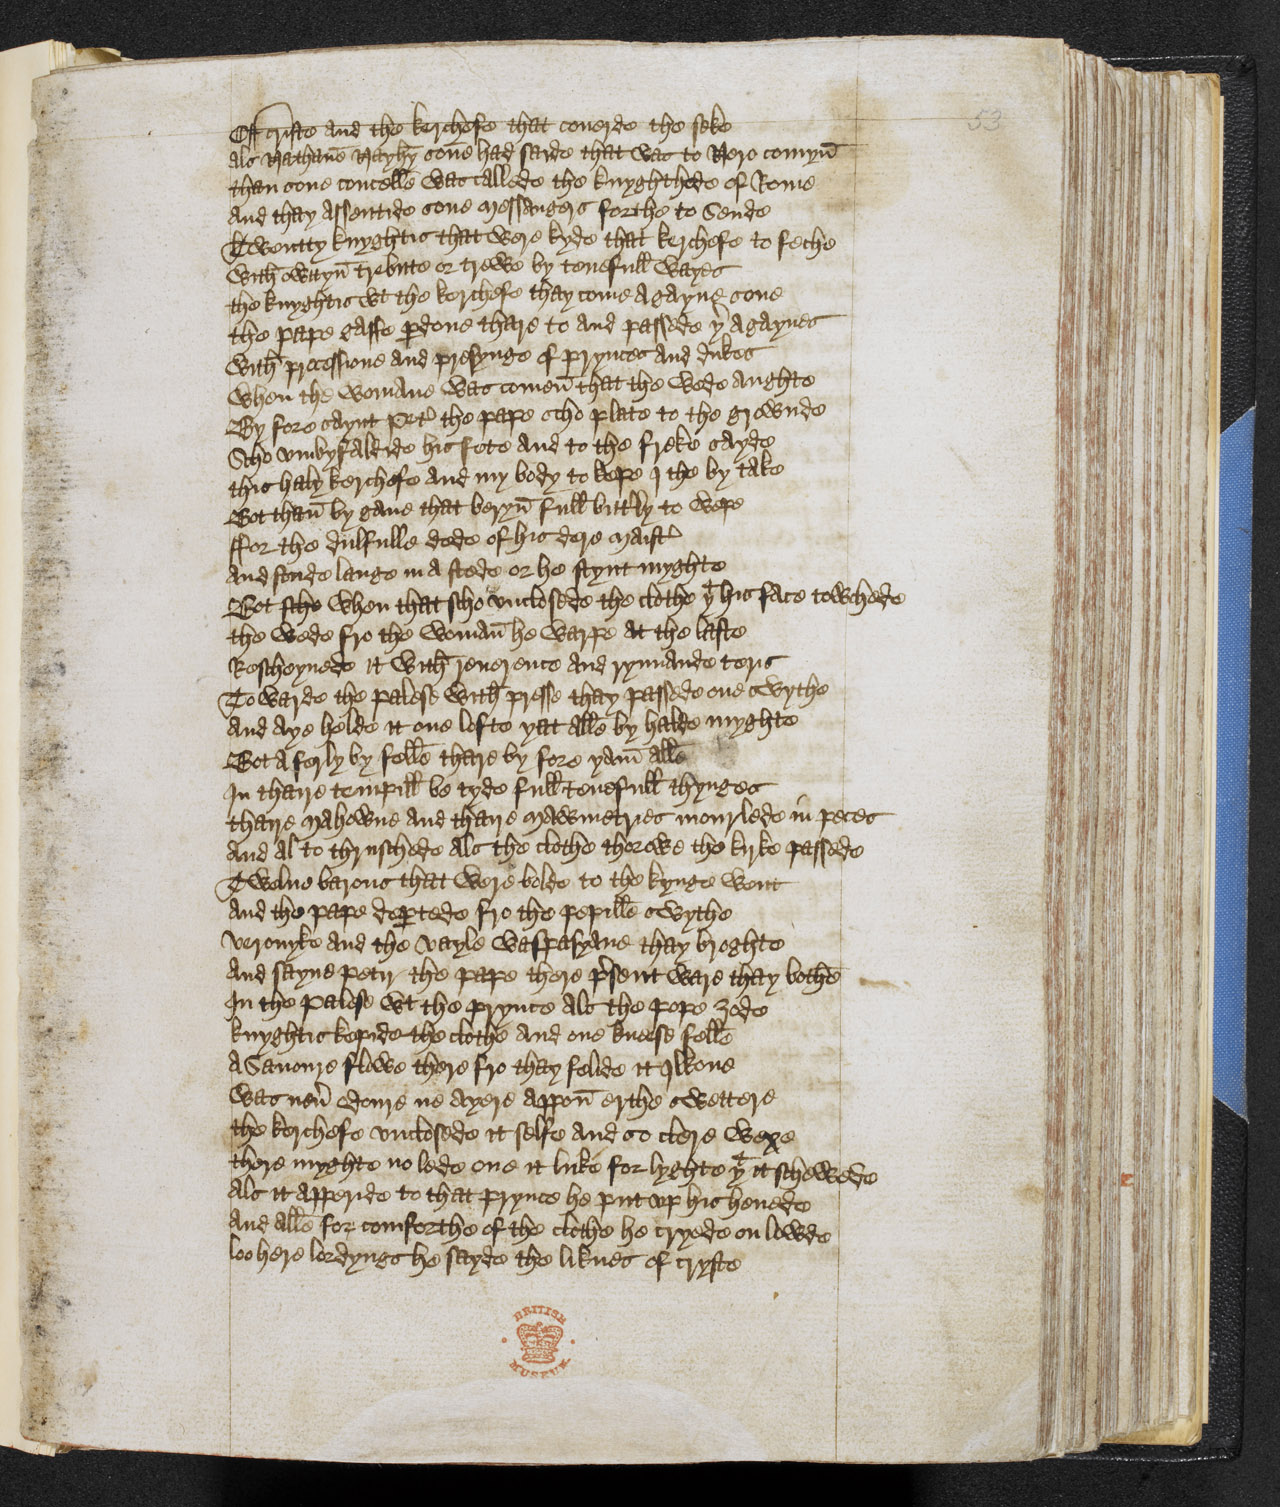 53
Off criste and the kerchefe that couerde the seke
als Nathane Nayhym sone had saide that was to Nero comyn̄
than sone concelle was callede the knyghthede of Rome
and thay assentide sone messangers forthe to Sende
Twentty knyghtis that were kyde that kerchefe to feche
with owttyn̄ trebute or trewe by tenefull wayes
the knyghtis wt the kerchefe thay come agayne sone
the pape gaffe ꝑdone thare to and passede yr agaynes
with processione and presynge of prynces and dukes
when the womane was comen̄ that the wede aughte
By fore saynt Petr the pape scho plate to the grownde
Scho vmbyfaldide his fete and to the freke sayde
this haly kerchefe and my body to kepe I the by take
Bot than̄ by gane that beryn̄ full bittrly to wepe
ffor the dulfulle dede of his dere maistr
and stode lange in a stede or he stynt myghte
Bot scho when that scho vnclosede the clothe yt his face towchede
the wede fro the woman̄ he warpe at the laste
Rescheyuede it with reuerence and rynnande teris
To warde the palese with presse thay passede one swythe
and aye helde it one lofte yat alle by halde myghte
Bot a ferly by felle thare by fore yam̄ alle
In thaire tempill be tyde full tenefull thynges
thaire mahowne and thaire mawmetries mourlede in peces
and al to thruschede als the clothe thorowe the kirke passede
Twelue barons that were bolde to the kynge went
and the pape deꝑtede fro the pepille swythe
veronyke and the vayle waspasyane thay broghte
and sayne petir the pape there prsent ware thay bothe
In the palese wt the prynce als the pope ȝode
knyghtis kepide the clothe and one kneese felle
A Sauoure flowe there fro thay felide it Ilkone
was neur̄ odoure ne ayere appon̄ erthe swettere
the kerchefe vnclosede it selfe and so clere wexe
there myghte no lede one it luke for lyghte yt it schewede
als it apperide to that prynce he put vp his heuede
and alle for comforthe of the clothe he cryede on lowde
loo here lordyngs he sayde the liknes of cryste
BRITISH
MUSEUM